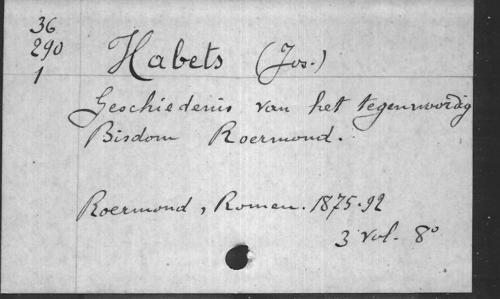 36
290
1
Habets (Jos.)
Geschiedenis van het tegenwoordig
Bisdom Roermond.
Roermond, Romen. 1875-92
3 vol. 8°